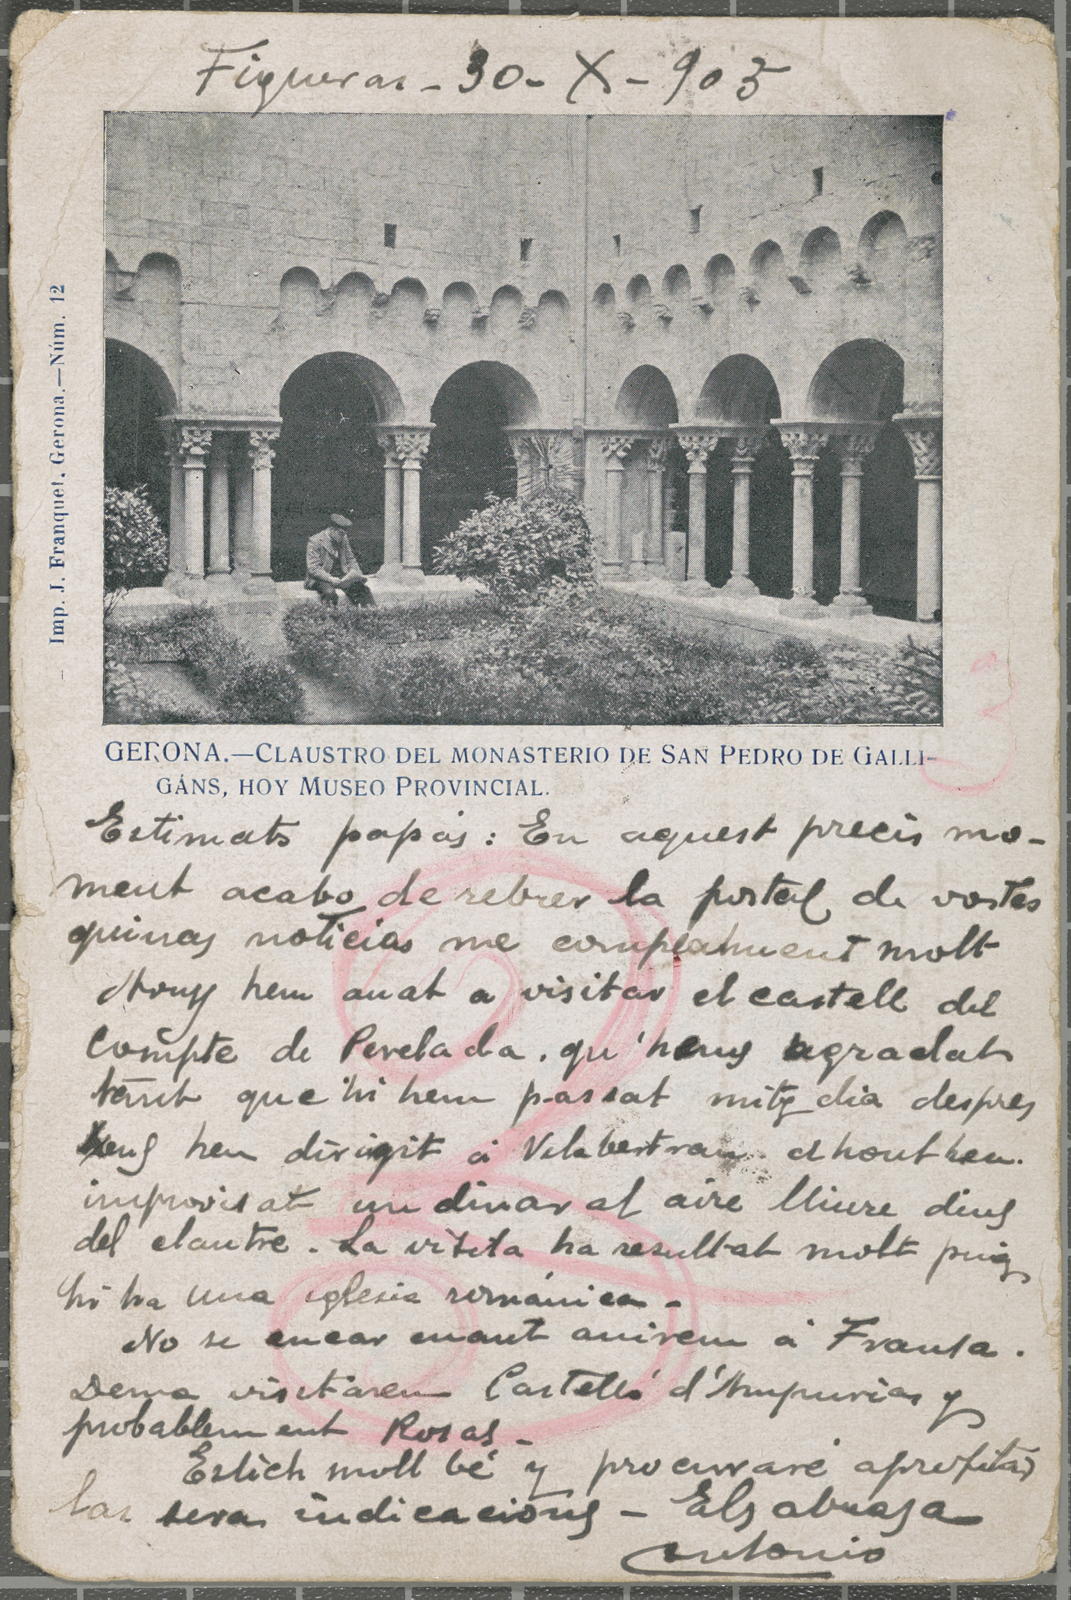 Figueras - 30 - X - 905
Imp. J. Franquet, Gerona.—Núm. 12
GERONA.—CLAUSTRO DEL MONASTERIO DE SAN PEDRO DE GALLI-
GÁNS, HOY MUSEO PROVINCIAL.
Estimats papás: En aquest precis mo-
ment acabo de rebrer la postal de vostes
quinas noticias me complahuent molt
Avuy hem anat a visitar el castell del
Compte de Perelada. qu'hens agradat
tant que hi hem passat mitg dia despres
hens hem dirigit á Vilabertran. ahont hem
improvisat un dinar al aire lliure dins
del claustre. La visita ha resultat molt puig
hi ha una iglesia románica -
No se encar cuant anirem á Fransa.
Dema visitarem Castelló d'Ampurias y
probablement Rosas -
Estich moll bé y procuraré aprofitar
las seras indicacions - Els abrasa
Antonio